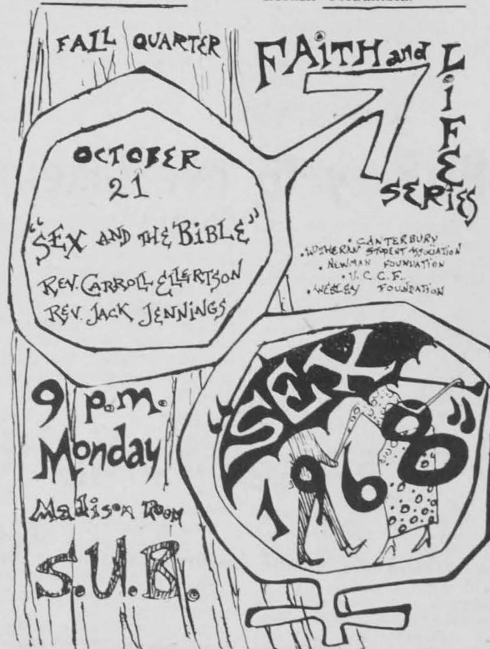 FALL QUARTER
FAITH and
LIFE
SERIES
OCTOBER
21
"SEX AND THE BIBLE"
REV. CARROLL ELLERTSON
REV. JACK JENNINGS
• CANTERBURY
• LUTHERAN STUDENT ASSOCIATION
• NEWMAN FOUNDATION
• U.C.C.F.
• WESLEY FOUNDATION
9 p.m.
Monday
Madison Room
S.U.B.
"SEX
1968"